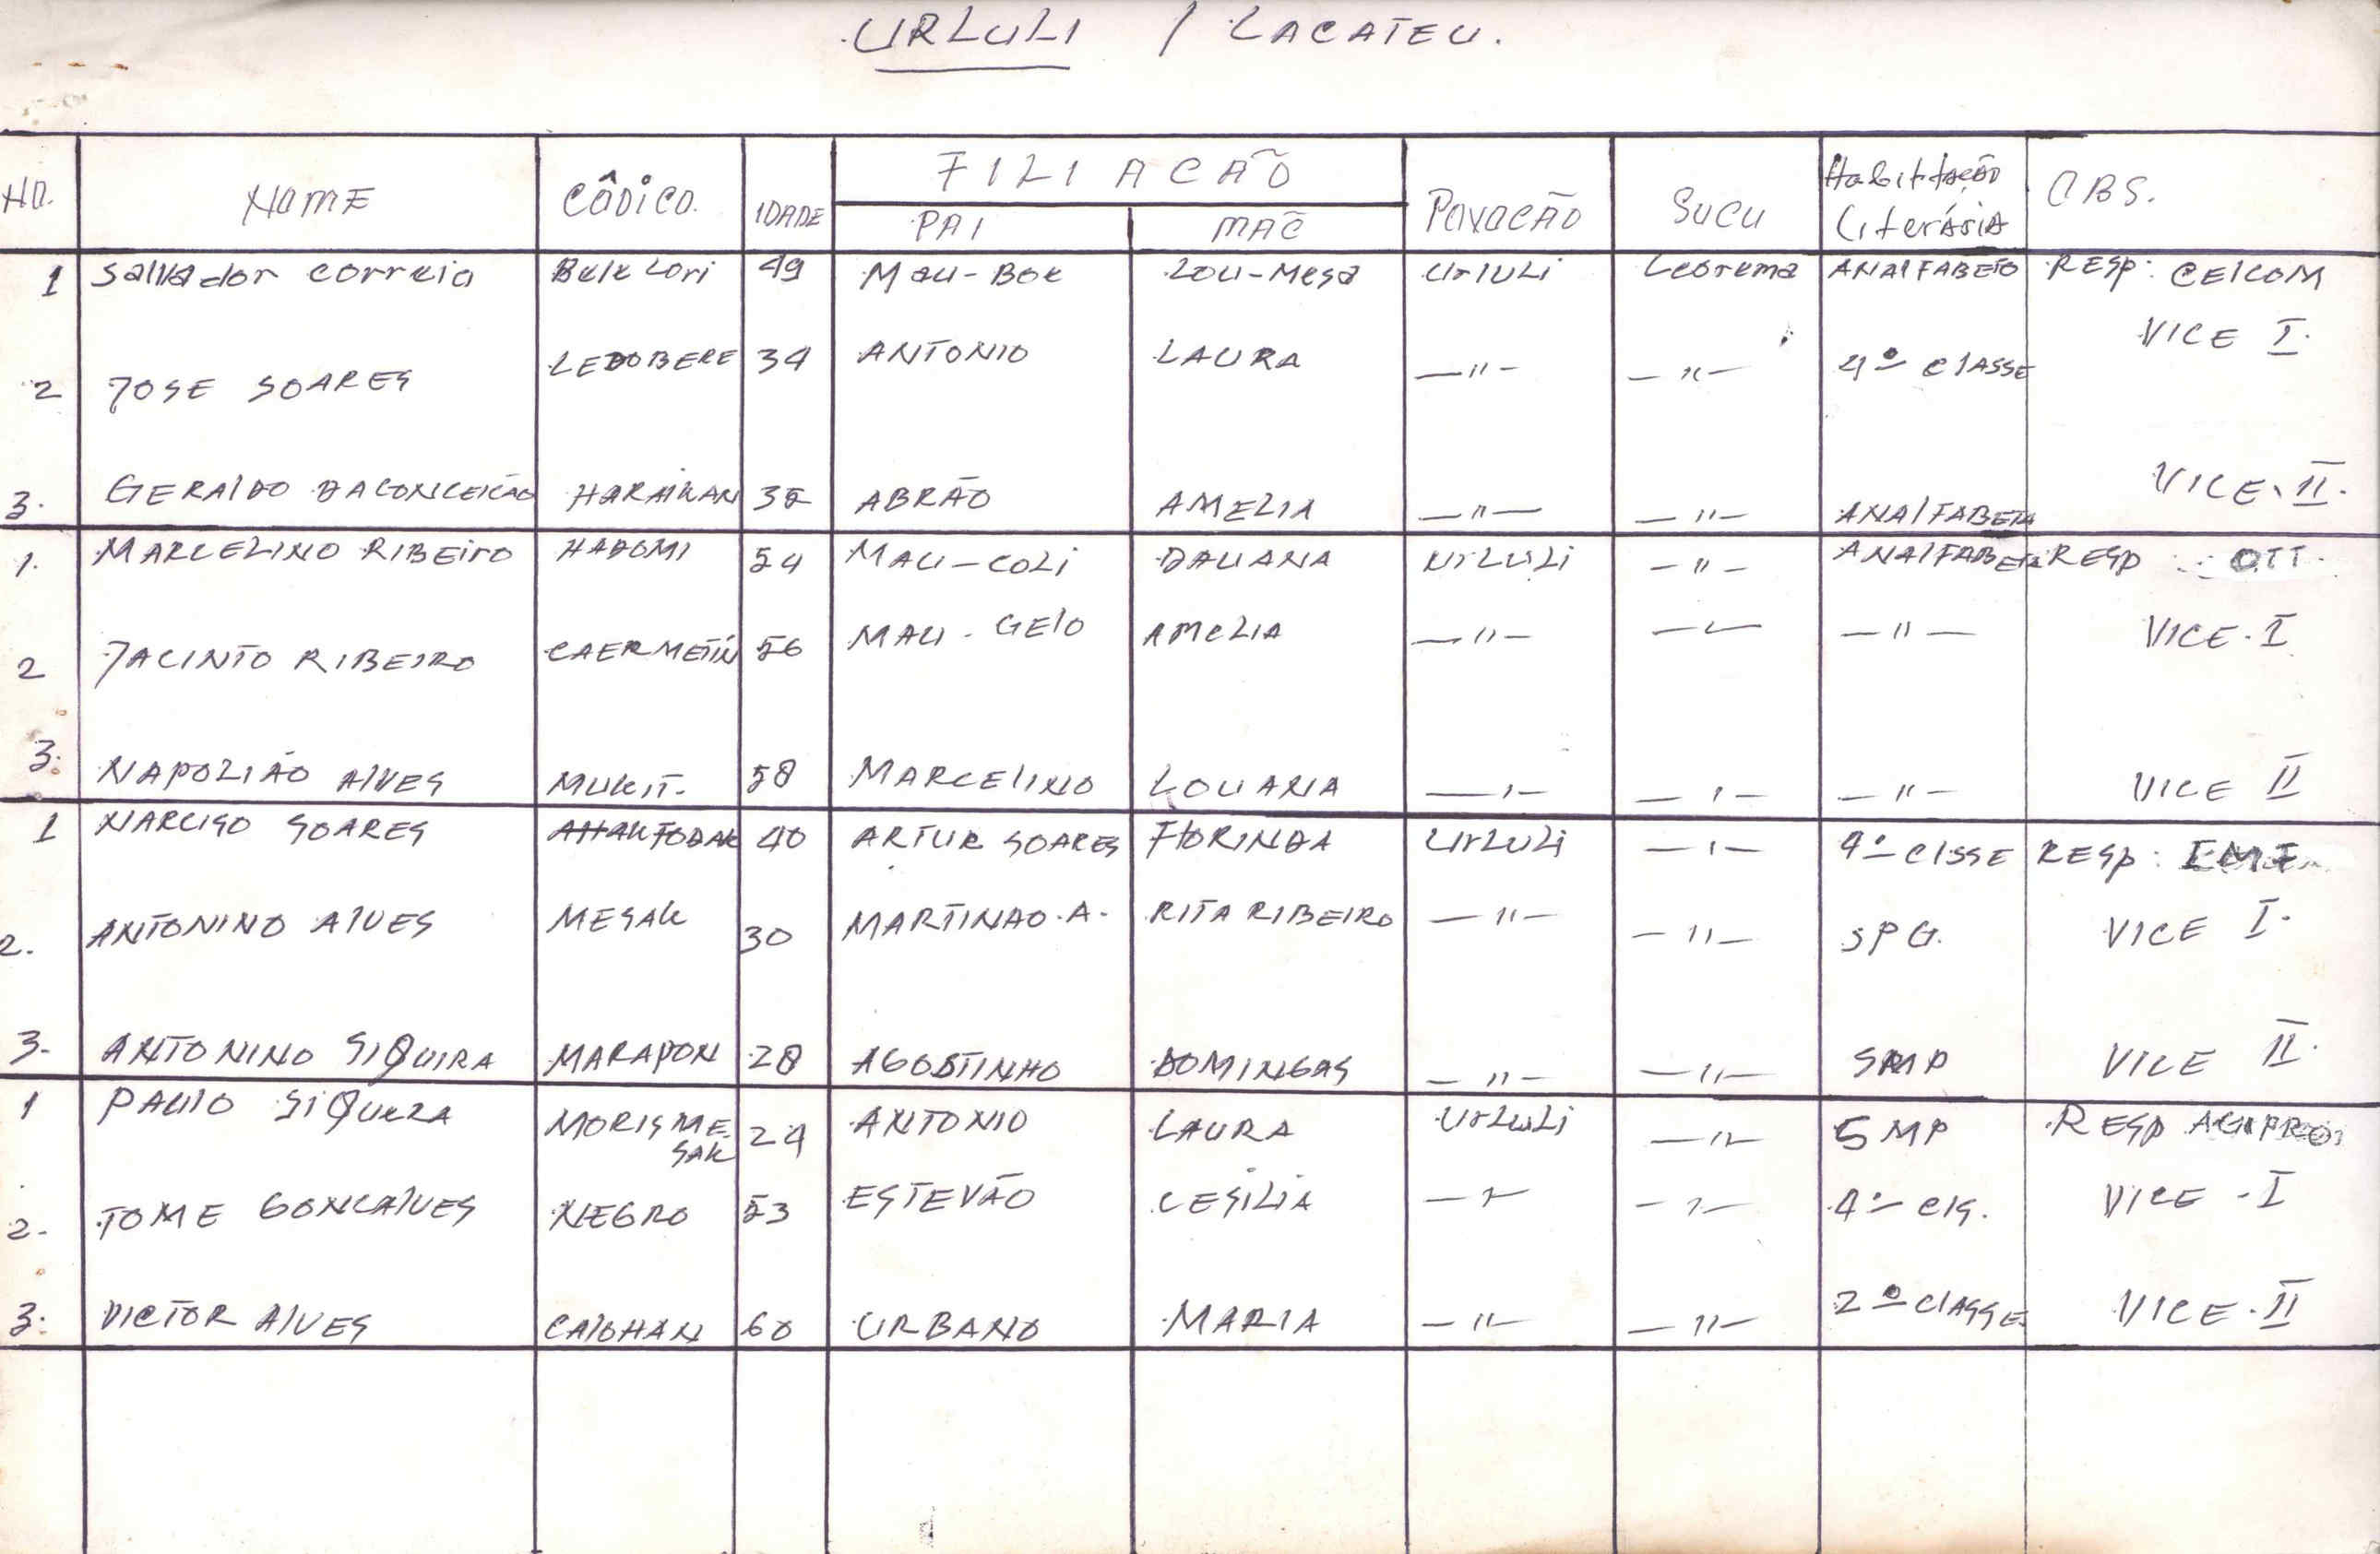 URLULI / LACATEU.
NO. NOME CÔDICO. IDADE FILIACÃO POVOCÃO SUCU Habilitação Literária OBS.
PAI MÃE
1 Salvador correia Bele Lori 49 Mau-Boe Lou-Mesa UrluLi Leorema ANAlFABETO RESP: CElCOM
2 JOSE SOARES LEDOBERE 34 ANTONIO LAURA —"— —"— 4º ClASSE VICE I.
3. GERAlDO DACONCEICÃO HARAIKAN ABRÃO AMELIA —"— —"— ANAlFABETA VICE. II.
1. MARCELINO RIBEIrO HADOMI 54 MAU-COLi DAUANA UrLULi —"— ANAlFABETA RESP: OTT.
2 JACINTO RIBEIRO CAERMETIN 56 MAU-GElO AMELIA —"— —"— —"— VICE. I
3. NAPOLIÃO AlVES MUKIT. 58 MARCElINO LOUANA —"— —"— —"— VICE II
1 NARCISO SOARES 40 ARTUR SOARES FlORINDA UrLULi —"— 4º ClSSE RESP:
2. ANTONINO AlVES MESAK 30 MARTINAO.A. RITA RIBEIRO —"— —"— SPG. VICE I.
3. ANTONINO SIQUIRA MARAPON 28 AGOSTINHO DOMINGAS —"— —"— SMP VICE II.
1 PAUlO SIQUERA MORISME SAK 24 ANTONIO LAURA UrLuLi —"— SMP RESP AGRPRO.
2. TOME GONCAlVES NEGRO 53 ESTEVÃO CESILIA —"— —"— 4º ClS. VICE - I
3. VICTOR AlVES CAlOHAN 60 URBANO MARIA —"— —"— 2º ClASSE VICE. II